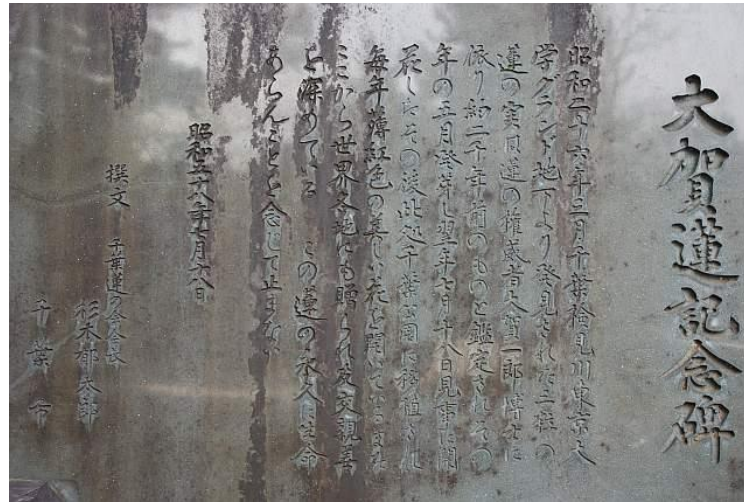 大賀蓮記念碑
昭和二十六年三月千葉検見川東京大
学グランド地下より発見された三粒の
蓮の実貝蓮の権威者大賀一郎博士に
依り約二千年前のものと鑑定されその
年の五月発芽し翌年七月十八日見事に開
花しせその後此処千葉公園に移植され
毎年薄紅色の美しい花を開いているまた
ここから世界各地にも贈られ友交親善
を深めている この蓮の永久に生命
あらんことを念じて止まない
昭和五十八年七月十八日
撰文 千葉蓮の会会長
杉木郁太郎
千葉市